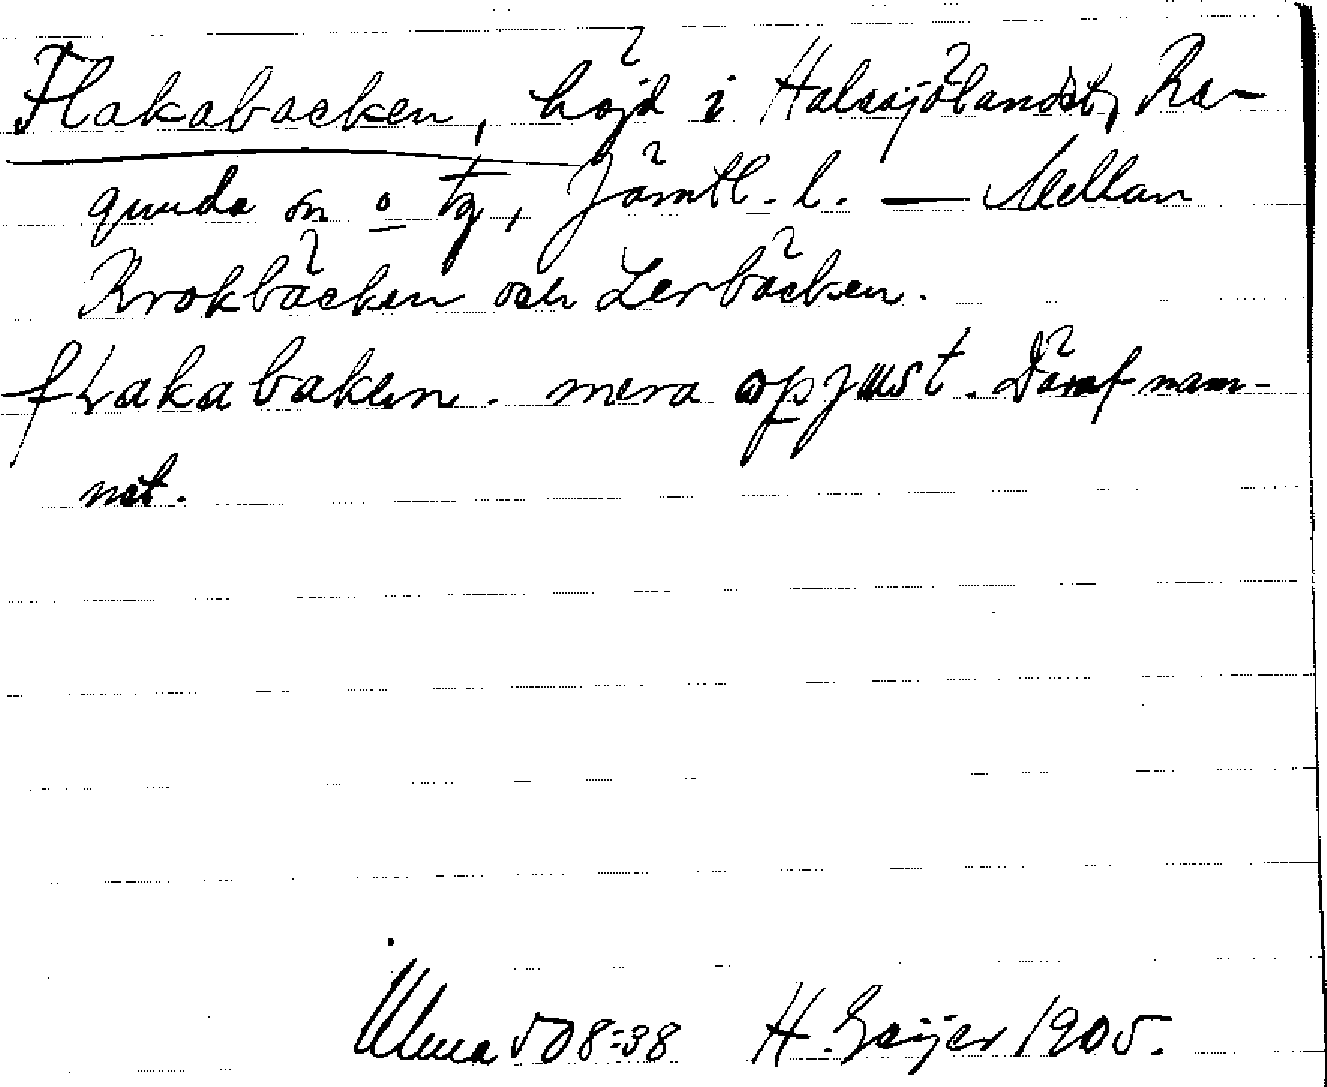 Flakabacken, höjd i Halasjölandet, Ra-
gunda sn o tg, Jämtl. l. — Mellan
Krokbäcken och Lerbäcken.
flakabaken. mera opjust. Däraf nam-
net.
Ulma 508:38 H. Geijer 1905.